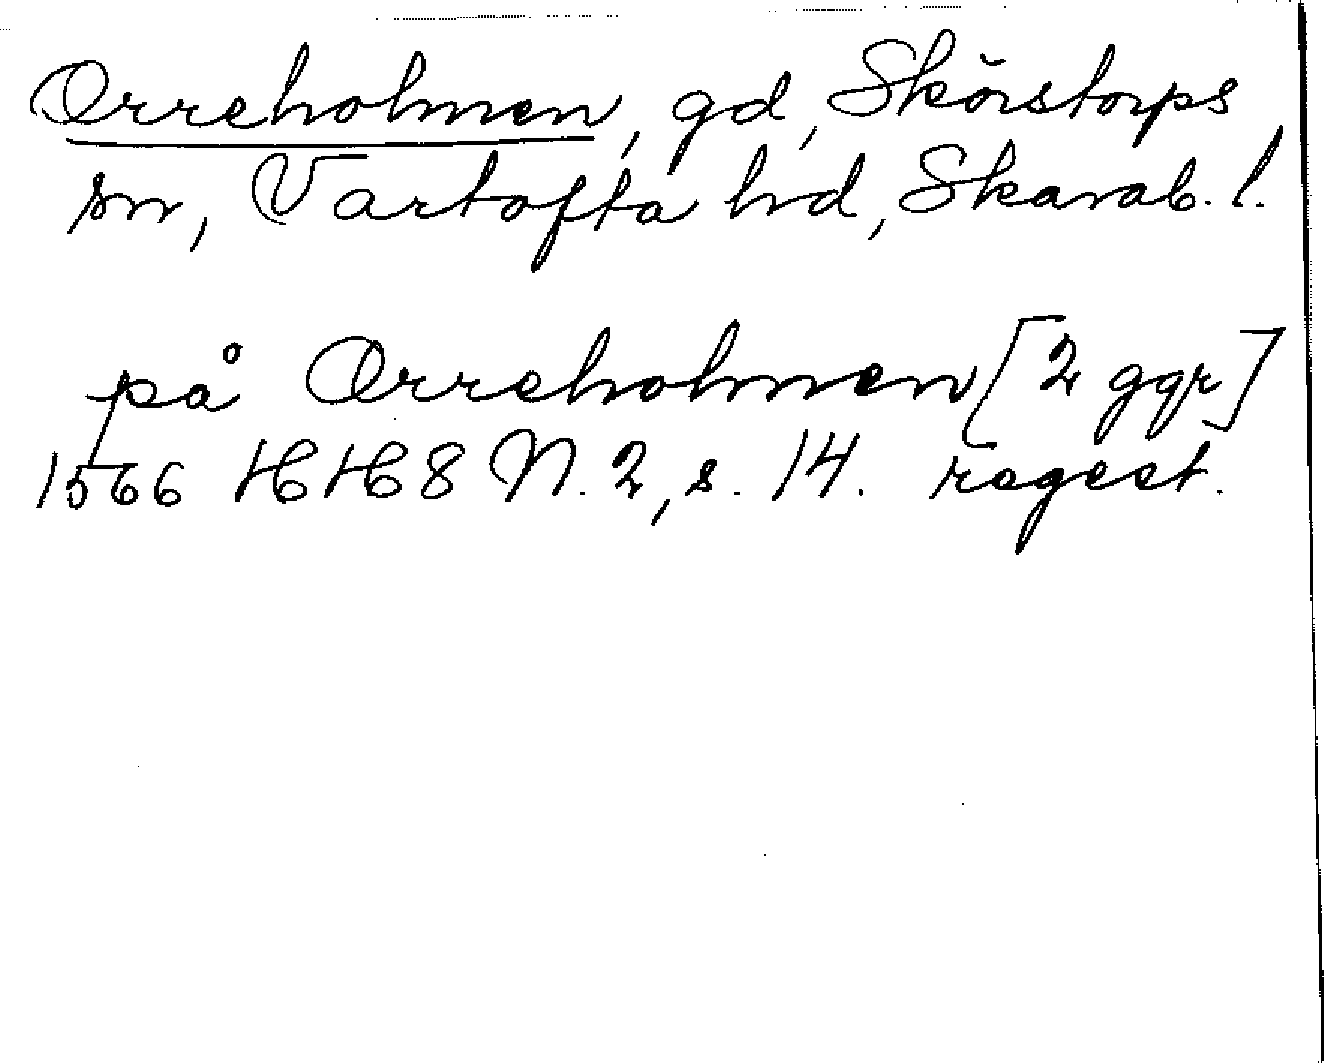 Orreholmen, gd, Skörstorps
sn, Vartofta hd, Skarab. l.
på Orreholmen [2 ggr]
1566 HH 8 N. 2, s. 14. regest.